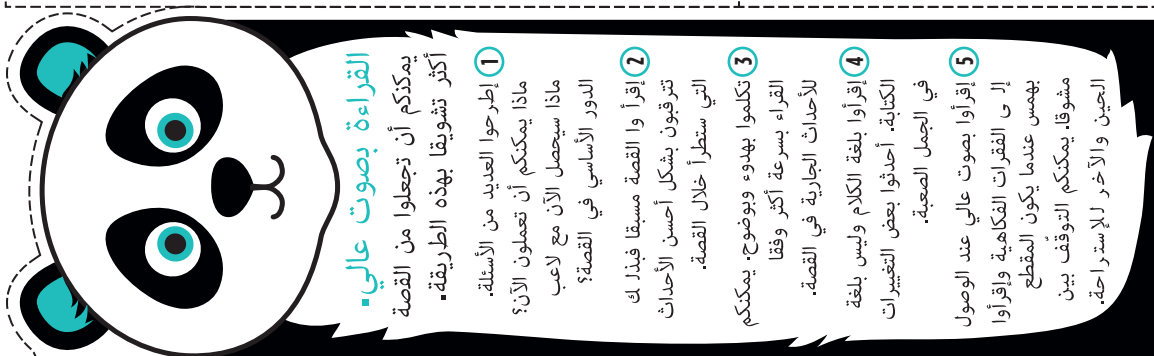 القراءة بصوت عالي.
يمكنكم أن تجعلوا من القصة
أكثر تشويقا بهذه الطريقة.
1 إطرحوا العديد من الأسئلة.
ماذا يمكنكم أن تعملون الآن؟
ماذا سيحصل الآن مع لاعب
الدور الأساسي في القصة؟
2 إقرأ وا القصة مسبقا فبذل ك
تترقبون بشكل أحسن الأحداث
التي ستطرأ خلال القصة.
3 تكلموا بهدوء وبوضوح. يمكنكم
القراء بسرعة أكثر وفقا
للأحداث الجارية في القصة.
4 إقرأوا بلغة الكلام وليس بلغة
الكتابة. أحدثوا بعض التغييرات
في الجمل الصعبة.
5 إقرأوا بصوت عالي عند الوصول
إل ى الفقرات الفكاهية وإقرأوا
بهمس عندما يكون المقطع
مشوقا. يمكنكم التوقفّ بين
الحين والآخر للإستراحة.